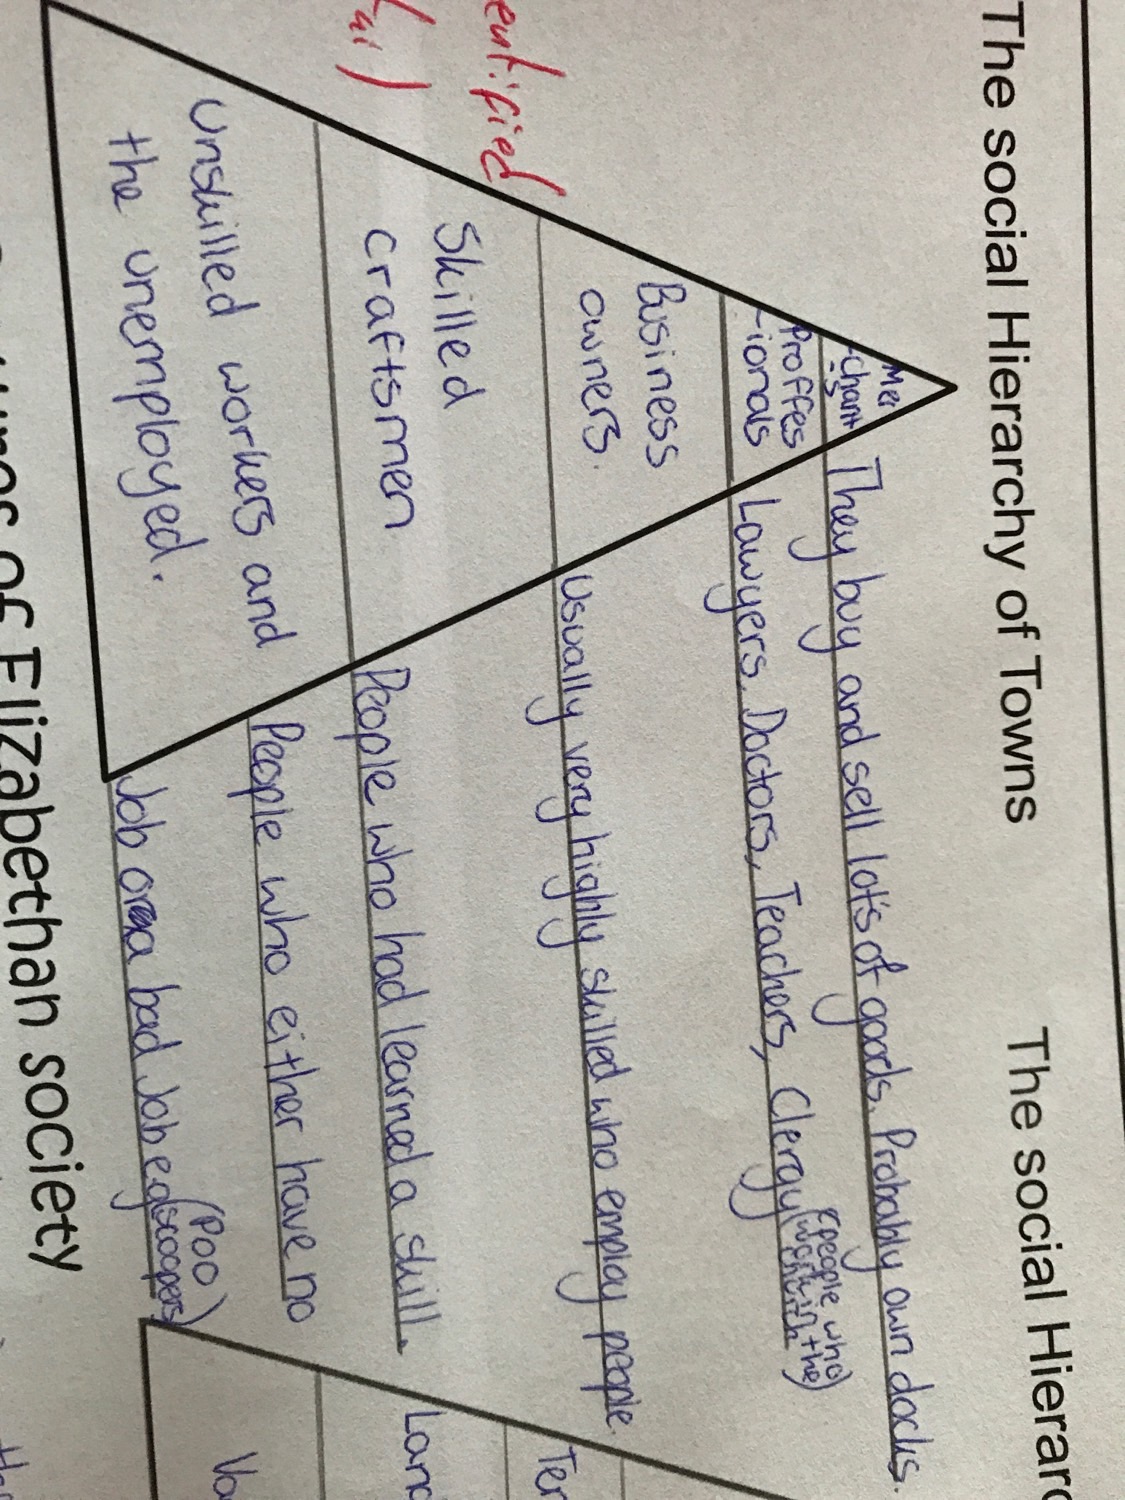 The social Hierarchy of Towns
The social Hierarc
Mer
-chant
s
They buy and sell lot's of goods. Probably own docks.
Proffes
-ionals
Lawyers, Doctors, Teachers, Clergy (people who
work in the)
Business
owners.
Usually very highly skilled who employ people.
entified
Skilled
craftsmen
People who had learned a skill.
Unskilled workers and
the unemployed.
People who either have no
Job or a bad Job eg (Poo)
scoopers)
Land
Ter
of Elizabethan society